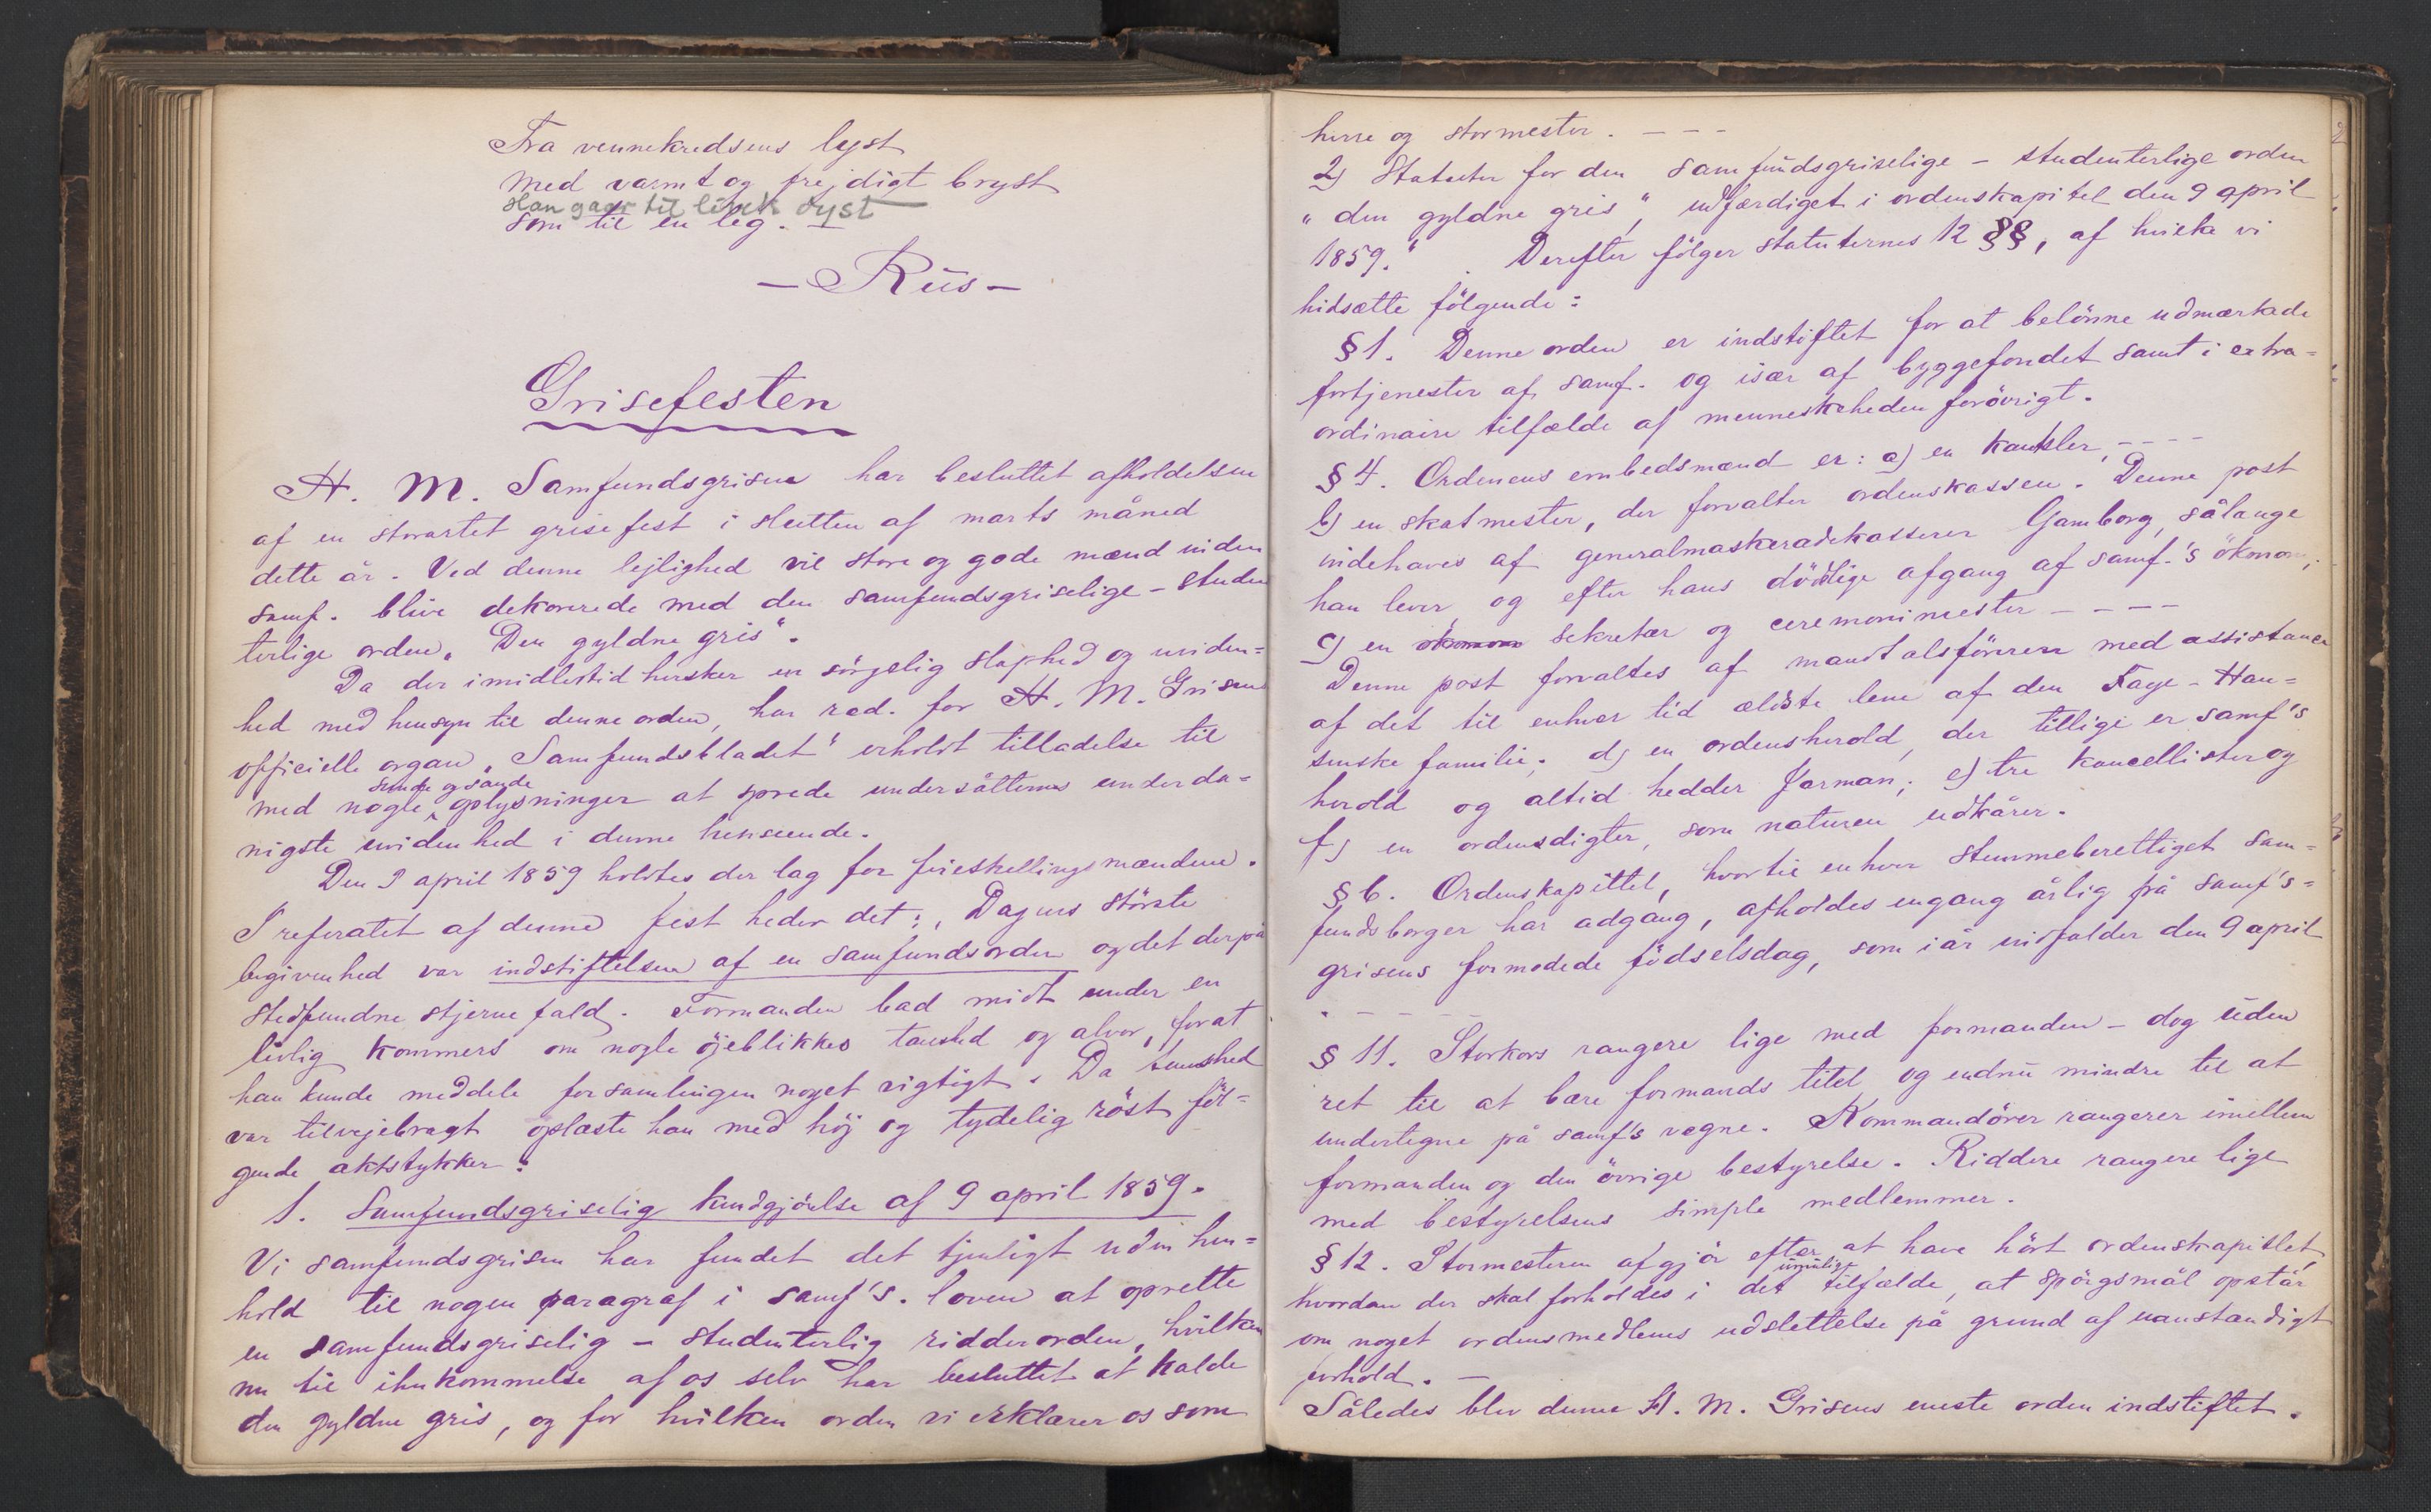 Fra vennekredsens lyst
med varmt og frejdigt bryst
Han gaar til livets dyst
som til en leg. —
— Riis —
Grisefesten
H. M. Samfundsgrisen har besluttet afholdelsen
af en storartet grisefest i slutten af marts måned
dette år. Ved denne lejlighed vil store og gode mænd inden
samf. blive dekorerede med den samfundsgriselige - studen
terlige orden „Den gyldne gris“.
Da der imidlertid hersker en sörgelig slaphed og uviden=
hed med hensyn til denne orden, har red. for H. M. Grisens
officielle organ „Samfundsbladet“ erholdt tilladelse til
sunde og sande
med nogle oplysninger at sprede undersåtternes underda=
nigste uvidenhed i denne henseende.
Den 9 april 1859 holdtes der lag for fireskillingsmændene.
I referatet af denne fest heder det: „Dagens störste
begivenhed var indstiftelsen af en samfundsorden og det derpå
stedfundne stjernefald. Formanden bad midt under en
livlig kommers om nogle öjeblikkes taushed og alvor, forat
han kunde meddele forsamlingen noget vigtigt. Da taushed
var tilvejebragt oplæste han med höj og tydelig röst föl=
gende aktstykker:
1. Samfundsgriselig kundgjörelse af 9 april 1859.
Vi samfundsgrisen har fundet det tjenligt uden hen=
hold til nogen paragraf i samf's. loven at oprette
en samfundsgriselig - studenterlig ridderorden, hvilken
nu til ihukommelse af os selv har besluttet at kalde
den gyldne gris, og for hvilken orden vi erklærer os som
herre og stormester. - - -
2) Statuter for den samfundsgriselige - studenterlige orden
„den gyldne gris“, udfærdiget i ordenskapitel den 9 april
1859.“ Derefter fölger statuternes 12 §§, af hvilke vi
hidsætte fölgende:
§ 1. Denne orden er indstiftet for at belönne udmærkede
fortjenester af samf. og især af byggefondet samt i extra=
ordinaire tilfælde af menneskeheden forövrigt.
§ 4. Ordenens embedsmænd er: a) en kantsler, - - - -
b) en skatmester, der forvalter ordenskassen. Denne post
indehaves af generalmaskeradekasserer Gamborg, sålange
han lever, og efter hans dödelige afgang af samf.'s ökonom;
c) en ökonom sekretær og ceremonimester - - - -
Denne post forvaltes af mandtalsföreren med assistance
af det til enhver tid ældste lem af den Faye-Han=
senske familie; d) en ordensherold, der tillige er samf's
herold og altid hedder Jarman; e) tre kancellister og
f) en ordensdigter, som naturen udkårer.
§ 6. Ordenskapittel, hvortil enhver stemmeberettiget sam=
fundsborger har adgang, afholdes engang årlig på samf's=
grisens formodede födselsdag, som i år indfalder den 9 april
. - - - - -
§ 11. Storkors rangere lige med formanden - dog uden
ret til at bære formands titel og endnu mindre til at
undertegne på samf's vegne. Kommandörer rangerer imellem
formanden og den övrige bestyrelse. Riddere rangere lige
med bestyrelsens simple medlemmer.
§ 12. Stormesteren afgjör efter at have hört ordenskapitlet,
umulige
hvordan der skal forholdes i det tilfælde, at spörgsmål opstår
om noget ordensmedlems udslettelse på grund af uanstændigt
forhold. —
Således blev denne H. M. Grisens eneste orden indstiftet.